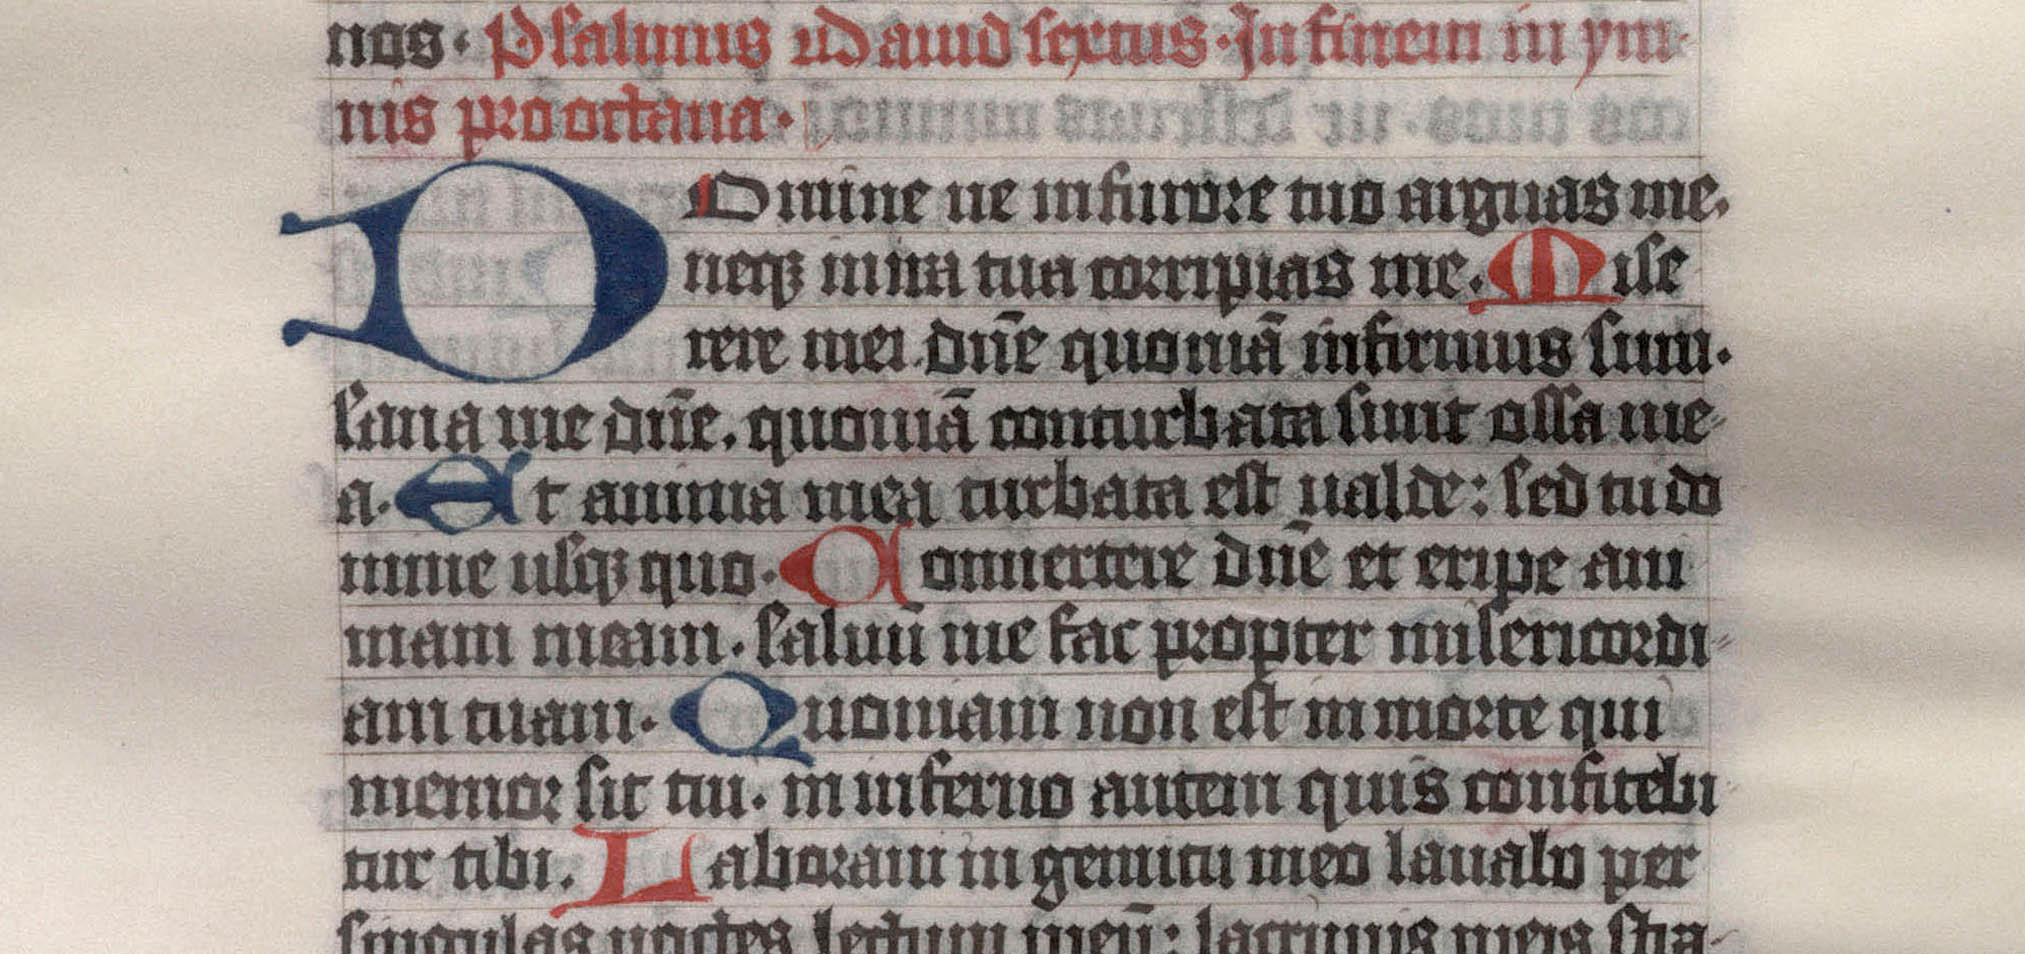 nos. Psalmus dauid sextus. In finem in ym-
nis pro octaua.
DOmine ne in furore tuo arguas me.
neqꝫ in ira tua corripias me. Mise
rere mei dn̄e quoniā infirmus sum.
sana me dn̄e. quoniā conturbata sunt ossa me-
a. Et anima mea turbata est ualde: sed tu do
mine usqꝫ quo. Conuertere dn̄e et eripe ani
mam meam. saluū me fac propter misericordi-
am tuam. Quoniam non est in morte qui
memor sit tui. in inferno autem quis confitebi
tur tibi. Laboraui in gemitu meo lauabo per
singulas noctes lectum meū: lacrimis meis stra-